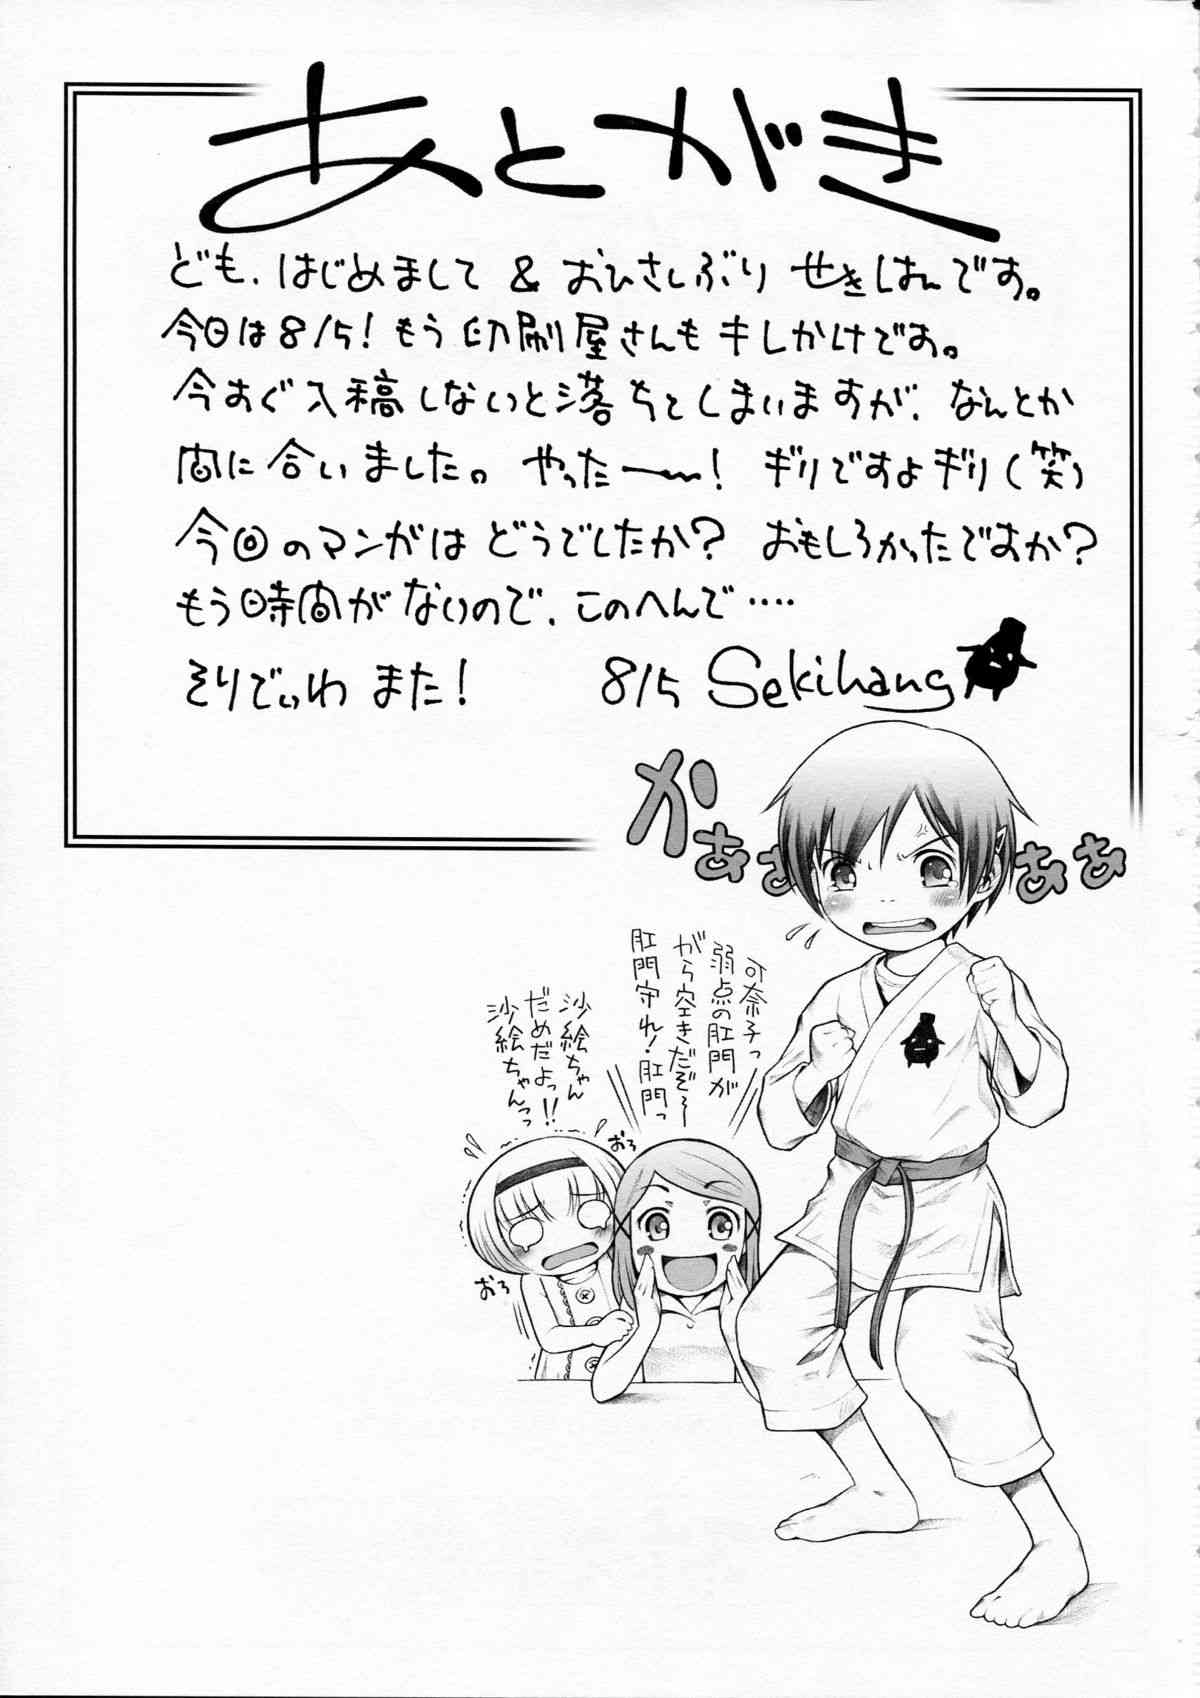 あとがき
ども、はじめまして & おひさしぶり せきはんです。
今日は8/5! もう印刷屋さんもキレかけです。
今すぐ入稿しないと落ちてしまいますが、なんとか
間に合いました。やったー〜! ギリですよギリ(笑)
今回のマンガは どうでしたか? おもしろかったですか?
もう時間がないので、このへんで‥‥
そりでぃわ また!
8/5 Sekihang
かぁぁぁぁ
沙絵ちゃん
だめだよっ!!
沙絵ちゃんっっ
おろ
おろ